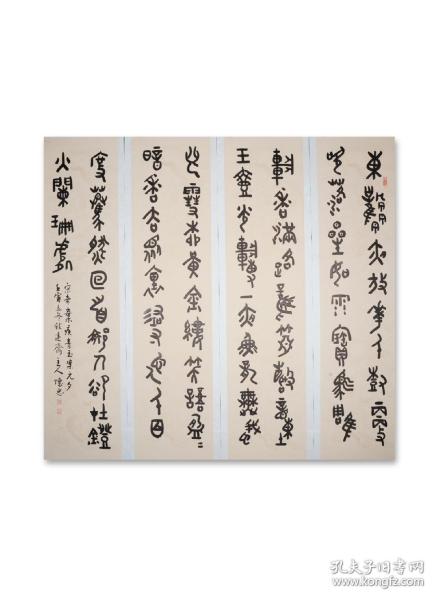 東風夜放花千樹更
吹落星如雨寶馬雕
車香滿路鳳簫聲動
玉壺光轉一夜魚龍舞蛾
兒雪柳黃金縷笑語盈〻
暗香去眾裏尋他千百
度驀然回首那人卻在燈
火闌珊處
宋辛棄疾青玉案元夕
壬寅
孔夫子旧书网